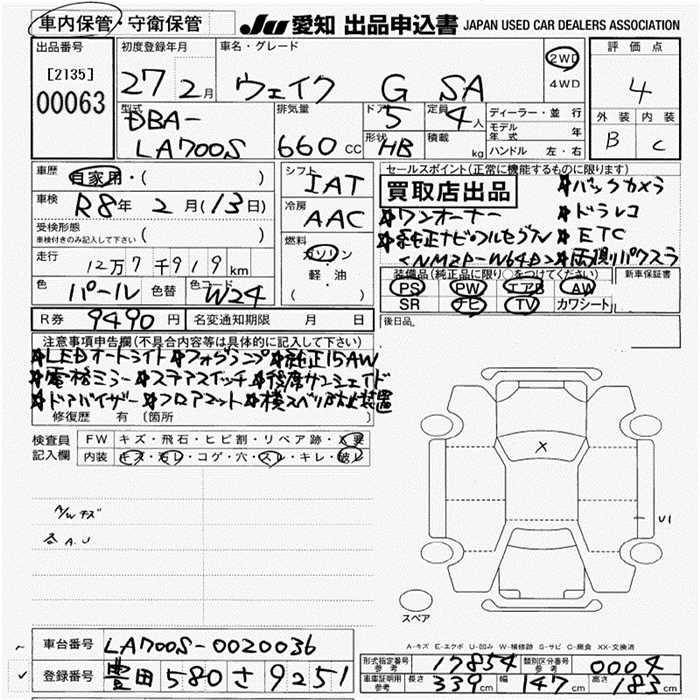 車内保管・守衛保管 JU 愛知 出品申込書 JAPAN USED CAR DEALERS ASSOCIATION
出品番号 初度登録年月 車名・グレード 評価点
[2135] 27年 2月 ウェイク G SA 2WD 4
00063 4WD
型式 排気量 ドア 定員 ディーラー・並行 外装 内装
DBA- 5 4人 モデル年式 年 B C
LA700S 660cc 形状 HB 積載 kg ハンドル 左・右
車歴 シフト セールスポイント(正常に機能するものに限ります)
自家用・( ) IAT 買取店出品 ★バックカメラ
車検 R8年 2月(13日) 冷房 ★ワンオーナー ★ドラレコ
受検形態 AAC ★純正ナビ・フルセグTV ★ETC
車検付きのみ記入して下さい ( ) <NMZP-W64D> ★両側Rパクスラ
走行 燃料 装備品(純正品に限り○をつけてください) 新車保証書
12万7千919km ガソリン PS PW エアB AW
色 パール 色替 色コード W24 軽・油 SR ナビ TV カワシート
( )
R券 9490円 名変通知期限 月 日 後日品
注意事項申告欄(不具合内容等は具体的に記入して下さい)
★LEDオートライト ★フォグランプ ★純正15AW
★電格ミラー ★ステアスイッチ ★後席サンシェイド
★ドアバイザー ★フロアマット ★横スベリ防止装置
修復歴 有 〔箇所
検査員 FW キズ・飛石・ヒビ割・リペア跡・X要
記入欄 内装 キズ・汚レ・コゲ・穴・スレ・キレ・破レ
X
A/Wキズ
各A.U U1
スペア
A-キズ E-エクボ U-凹み W-補修跡 S-サビ C-腐食 XX-交換済
車台番号 LA700S-0020036
形式指定番号 参考 17854 類別区分番号 参考 0004
登録番号 豊田 580 さ 9251
車庫証明用 参考 長さ 339cm 幅 147cm 高さ 183cm